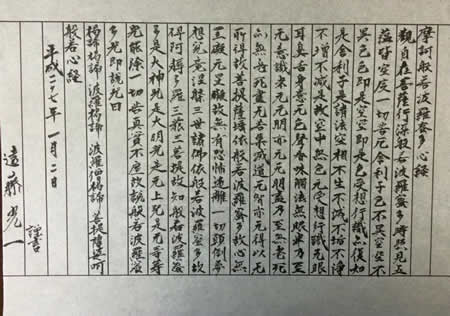 摩訶般若波羅蜜多心経
観自在菩薩行深般若波羅蜜多時照見五
蘊皆空度一切苦厄舎利子色不異空空不
異色色即是空空即是色受想行識亦復如
是舎利子是諸法空相不生不滅不垢不浄
不増不減是故空中無色无受想行識无眼
耳鼻舌身意无色声香味触法無眼界乃至
无意識界无无明亦无无明尽乃至無老死
亦無老死尽无苦集滅道无智亦无得以无
所得故菩提薩埵依般若波羅蜜多故心無
罣礙无罣礙故無有恐怖遠離一切顛倒夢
想究竟涅槃三世諸佛依般若波羅蜜多故
得阿耨多羅三藐三菩提故知般若波羅蜜
多是大神呪是大明呪是无上呪是无等等
呪能除一切苦真實不虚故説般若波羅蜜
多呪即説呪曰
羯諦羯諦 波羅羯諦 波羅僧羯諦 菩提薩婆呵
般若心経
平成二十七年 一月二日
遠藤光一 謹書